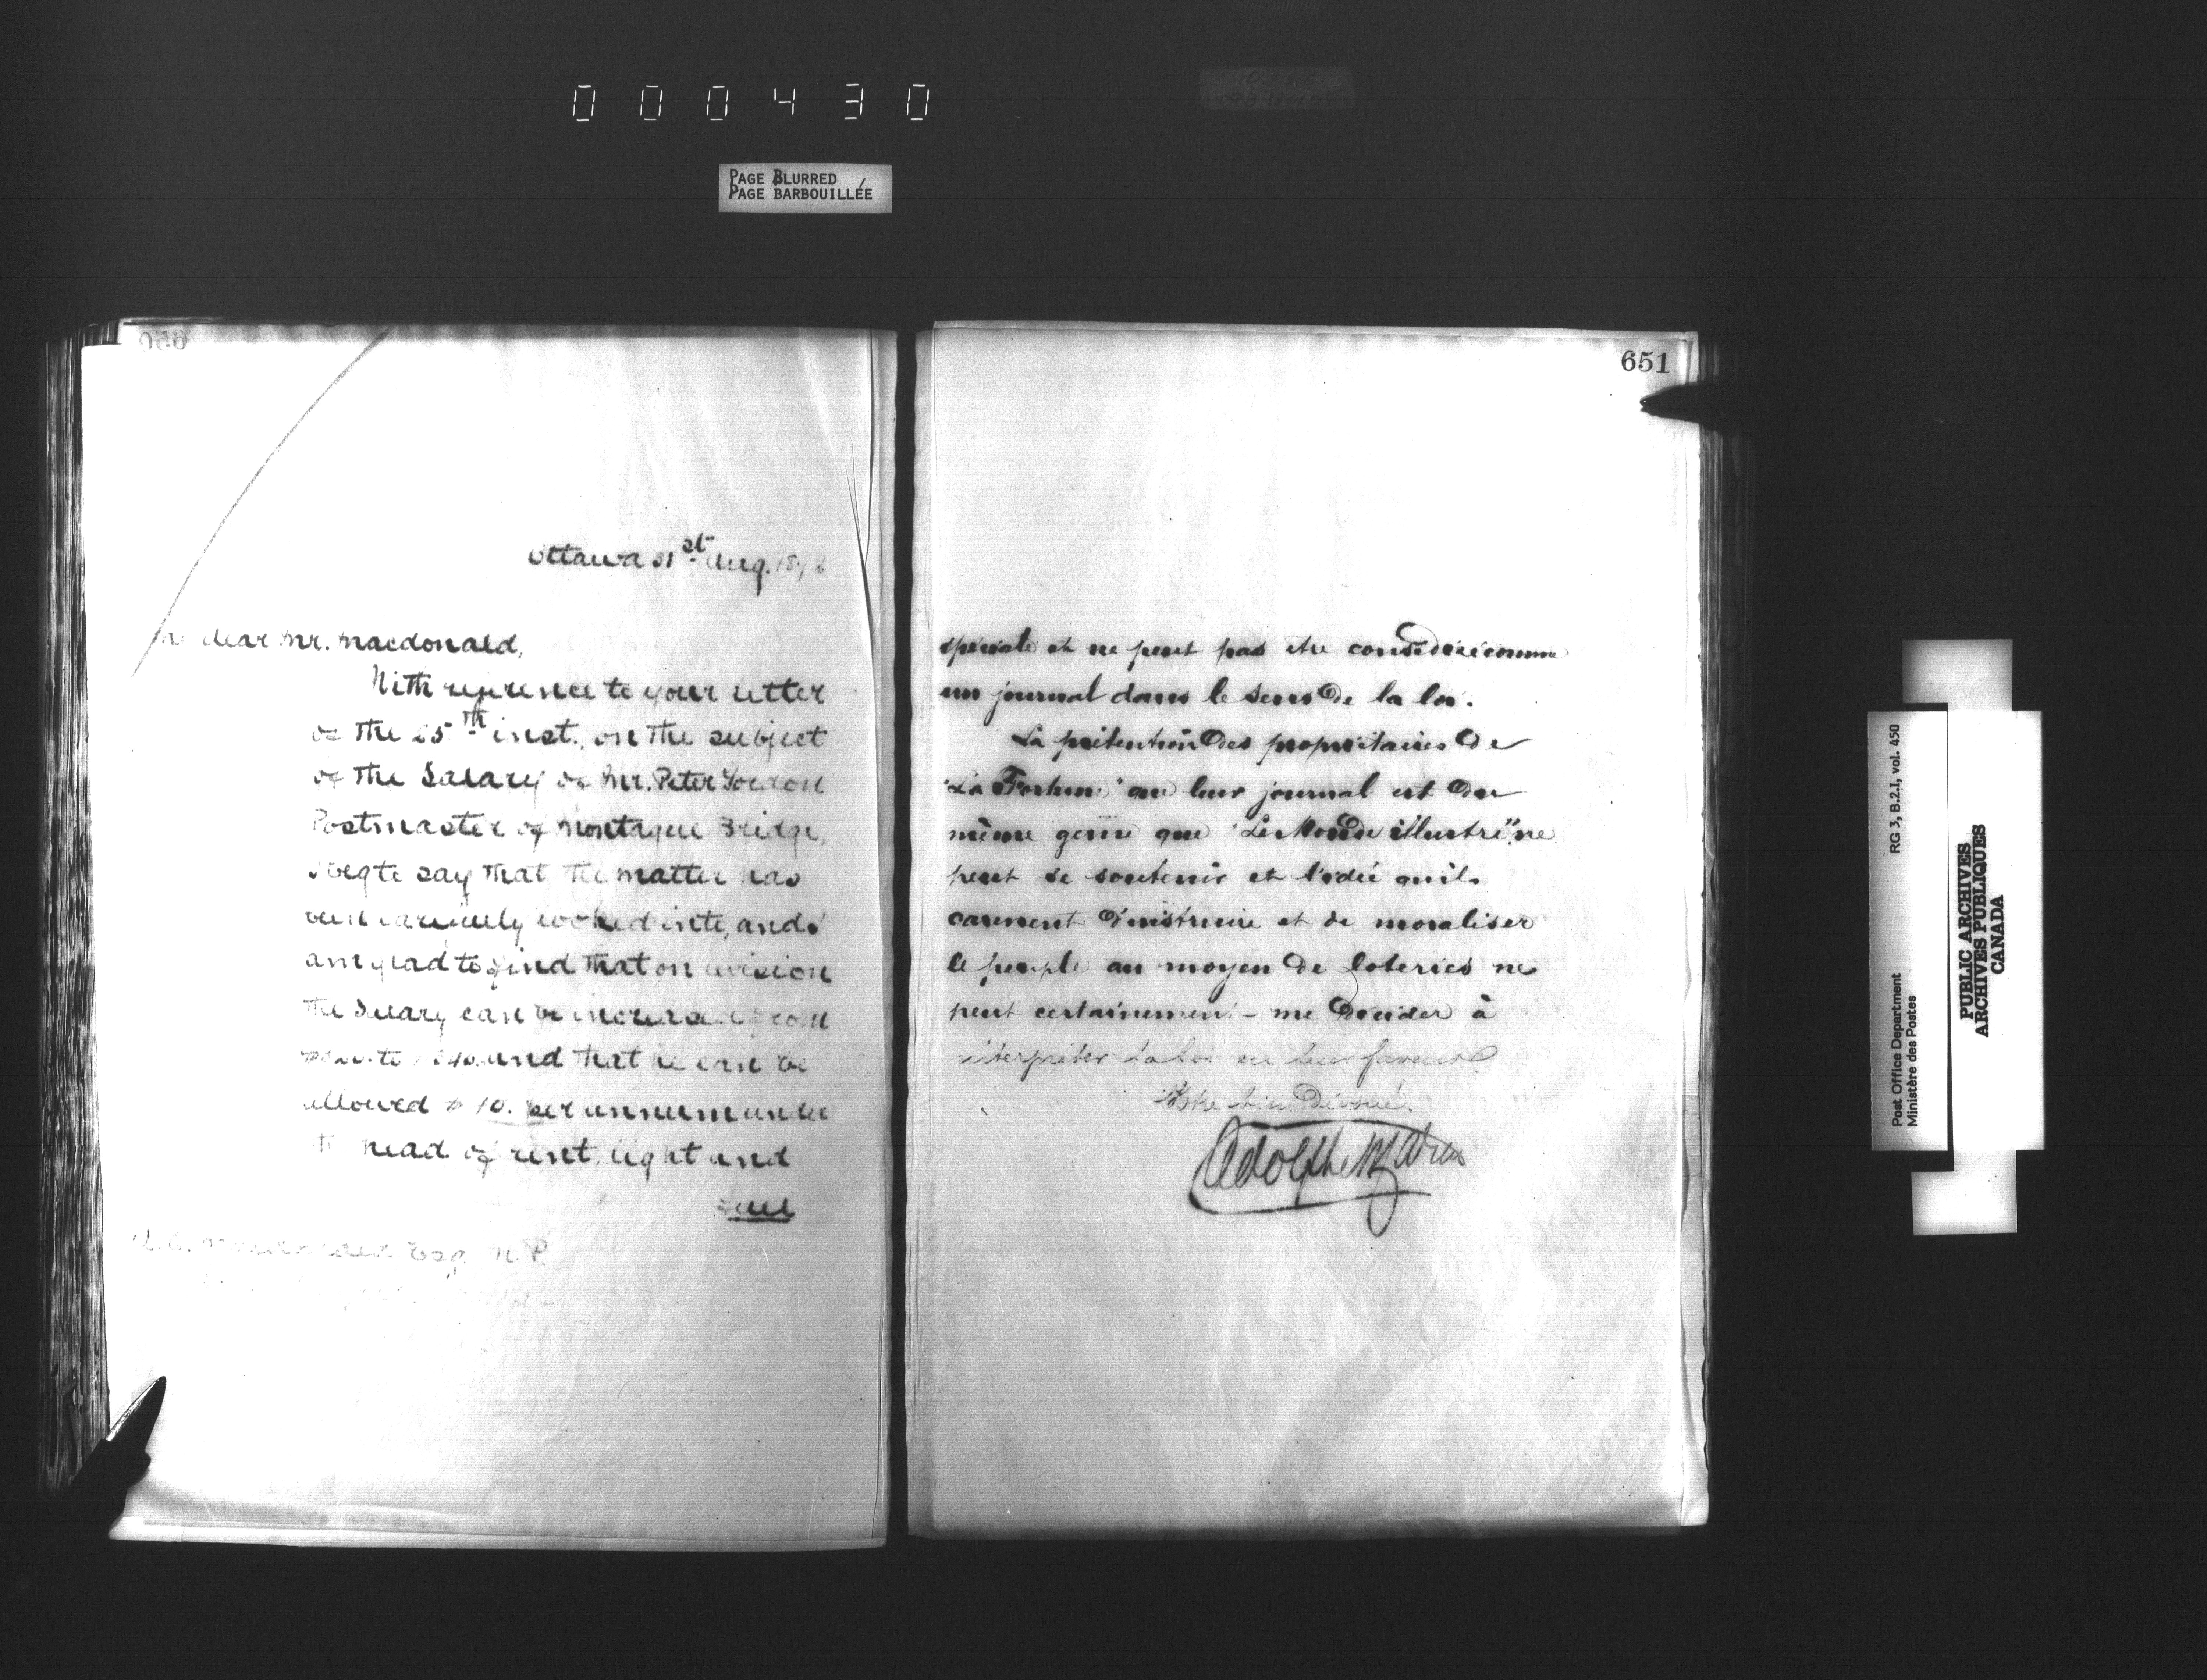 000430
PAGE BLURRED
PAGE BARBOUILLÉE
650
Ottawa 31st Aug. 18
dear Mr. Macdonald,
With reference to your letter
of the 25th inst., on the subject
of the Salary of Mr. Peter Gordon
Postmaster of Montague Bridge,
I beg to say that the matter has
been carefully looked into, and I
am glad to find that on revision
the Salary can be increased from
to and that he can be
allowed $10. per annum under
head of rent, light and
fuel
Macdonald Esq. M.P.
651
speciale et ne peut pas etre considéré comme
un journal dans le sens de la loi.
La prétention des propriétaires de
"La Fortune" que leur journal est du
même genre que "Le Monde illustré" ne
peut se soutenir et l'idée qu'ils
caressent d'instruire et de moraliser
le peuple au moyen de loteries ne
peut certainement me decider à
interpréter la loi en leur faveur
Votre bien Dévoué.
Adolphe
Post Office Department
Ministère des Postes
RG 3, B.2.I, vol. 450
PUBLIC ARCHIVES
ARCHIVES PUBLIQUES
CANADA